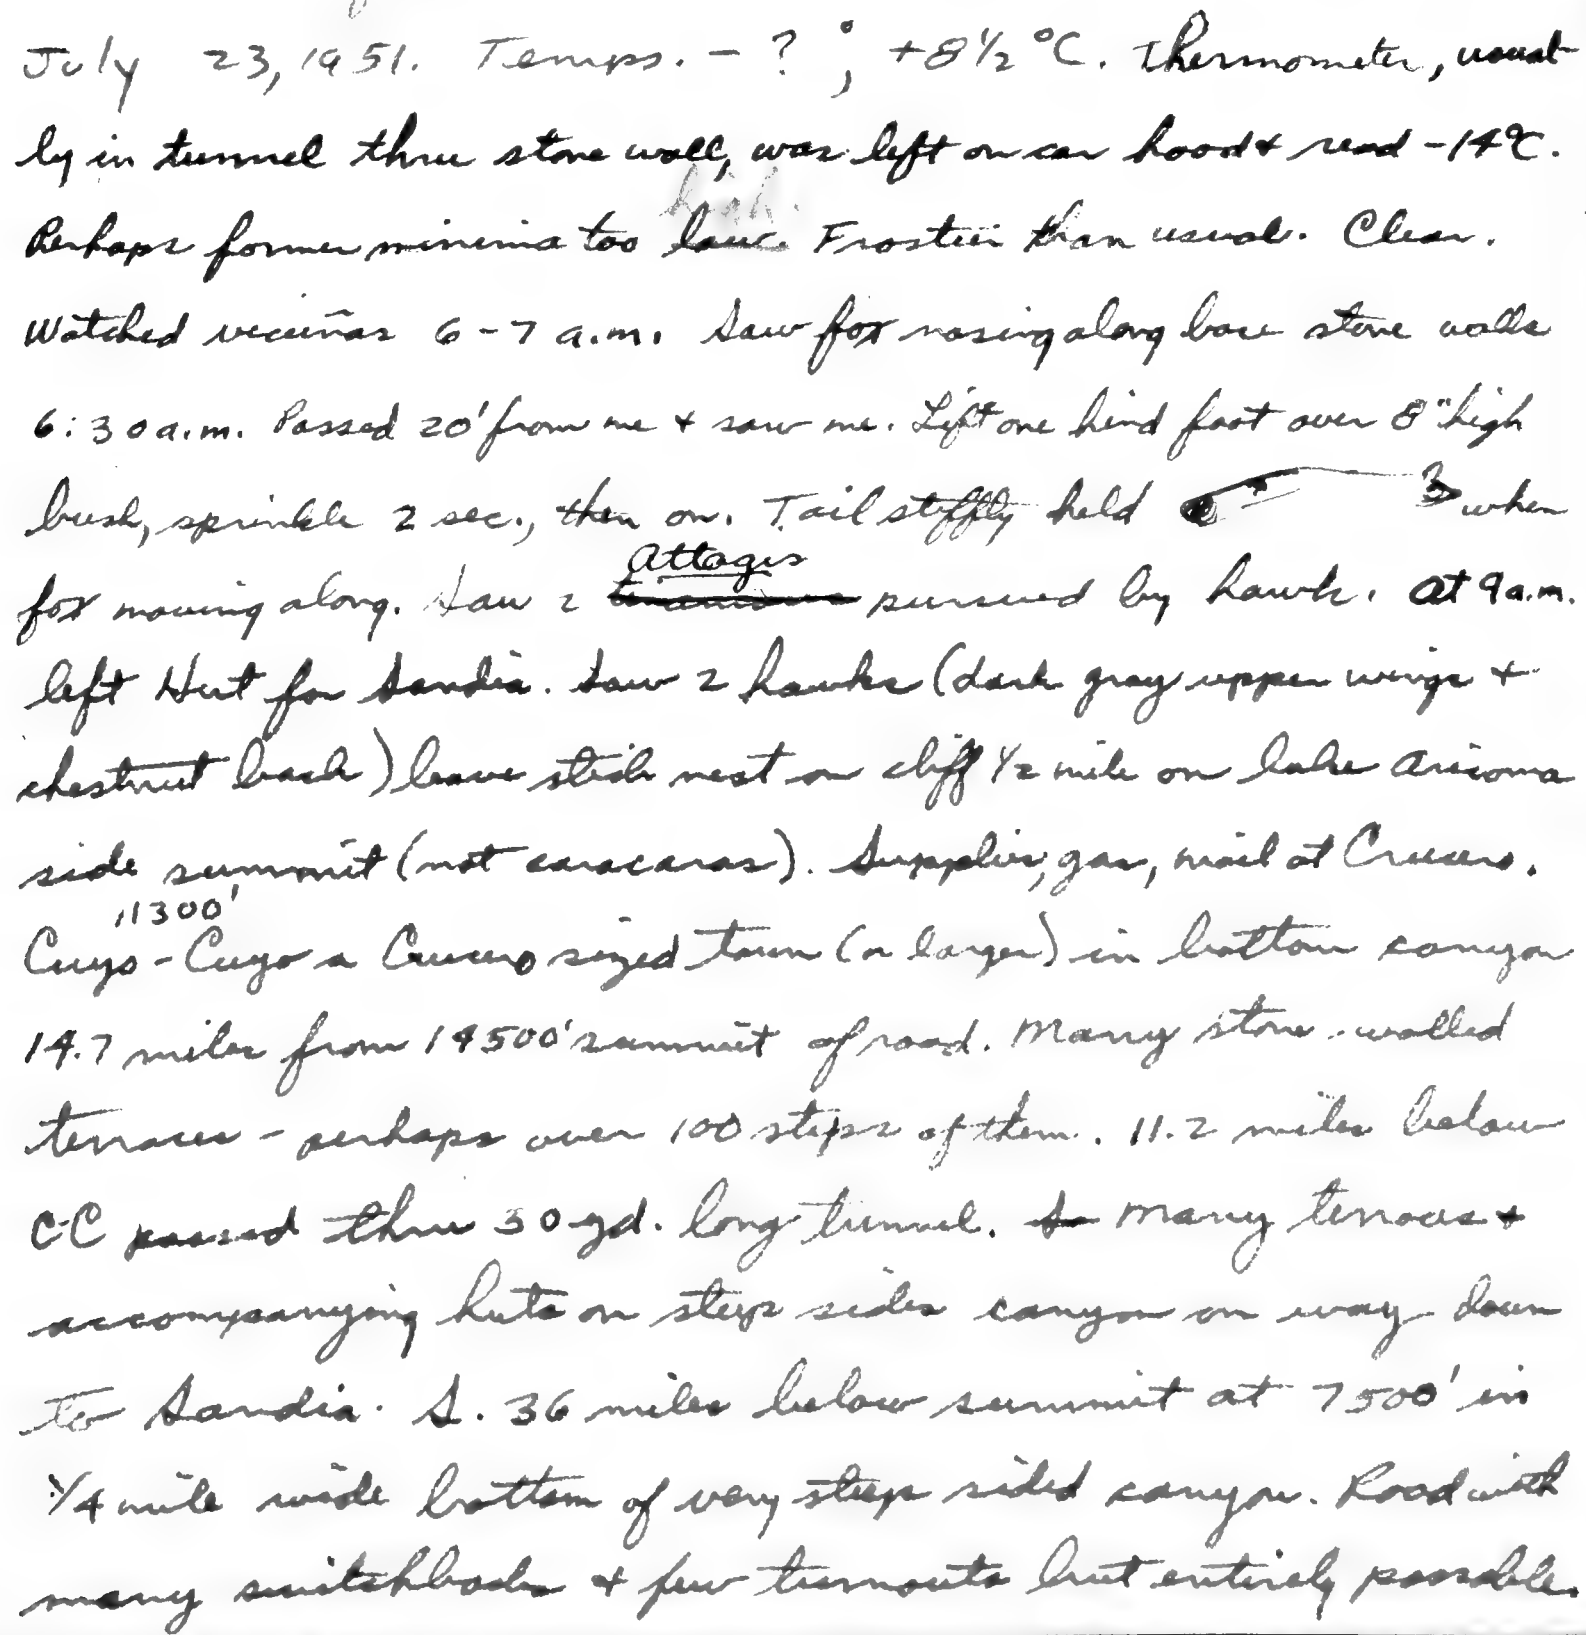 July 23, 1951. Temps. - ?°; +8½°C. Thermometer, usual-
ly in tunnel thru stone wall, was left on car hood & read -14°C.
high.
Perhaps former minima too low. Frostier than usual. Clear.
Watched vicuñas 6-7 a.m. Saw fox nosing along base stone walls
6:30 a.m. Passed 20' from me & saw me. Lift one hind foot over 8" high
bush, sprinkle 2 sec., then on. Tail stiffly held when
Attagis
fox moving along. Saw 2 pursued by hawk. At 9 a.m.
left Hut for Sandia. Saw 2 hawks (dark gray upper wings &
chestnut back) leave stick nest on cliff ½ mile on Lake Aricoma
side summit (not caracaras). Supplies, gas, mail at Crucero.
11300'
Cuyo-Cuyo a Crucero sized town (or larger) in bottom canyon
14.7 miles from 14500' summit of road. Many stone-walled
terraces - perhaps over 100 steps of them. 11.2 miles below
C-C passed thru 30 yd. long tunnel. So Many terraces &
accompanying huts on steep sides canyon on way down
to Sandia. S. 36 miles below summit at 7500' in
¼ mile wide bottom of very steep sided canyon. Road with
many switchbacks & few turnouts but entirely passable.